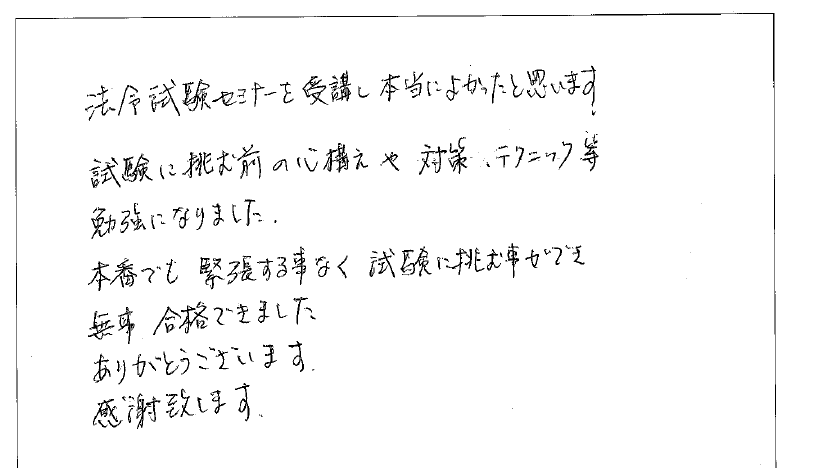 法令試験セミナーを受講し本当によかったと思います.
試験に挑む前の心構えや対策、テクニック等
勉強になりました.
本番でも緊張する事なく試験に挑む事ができ
無事合格できました
ありがとうございます.
感謝致します.